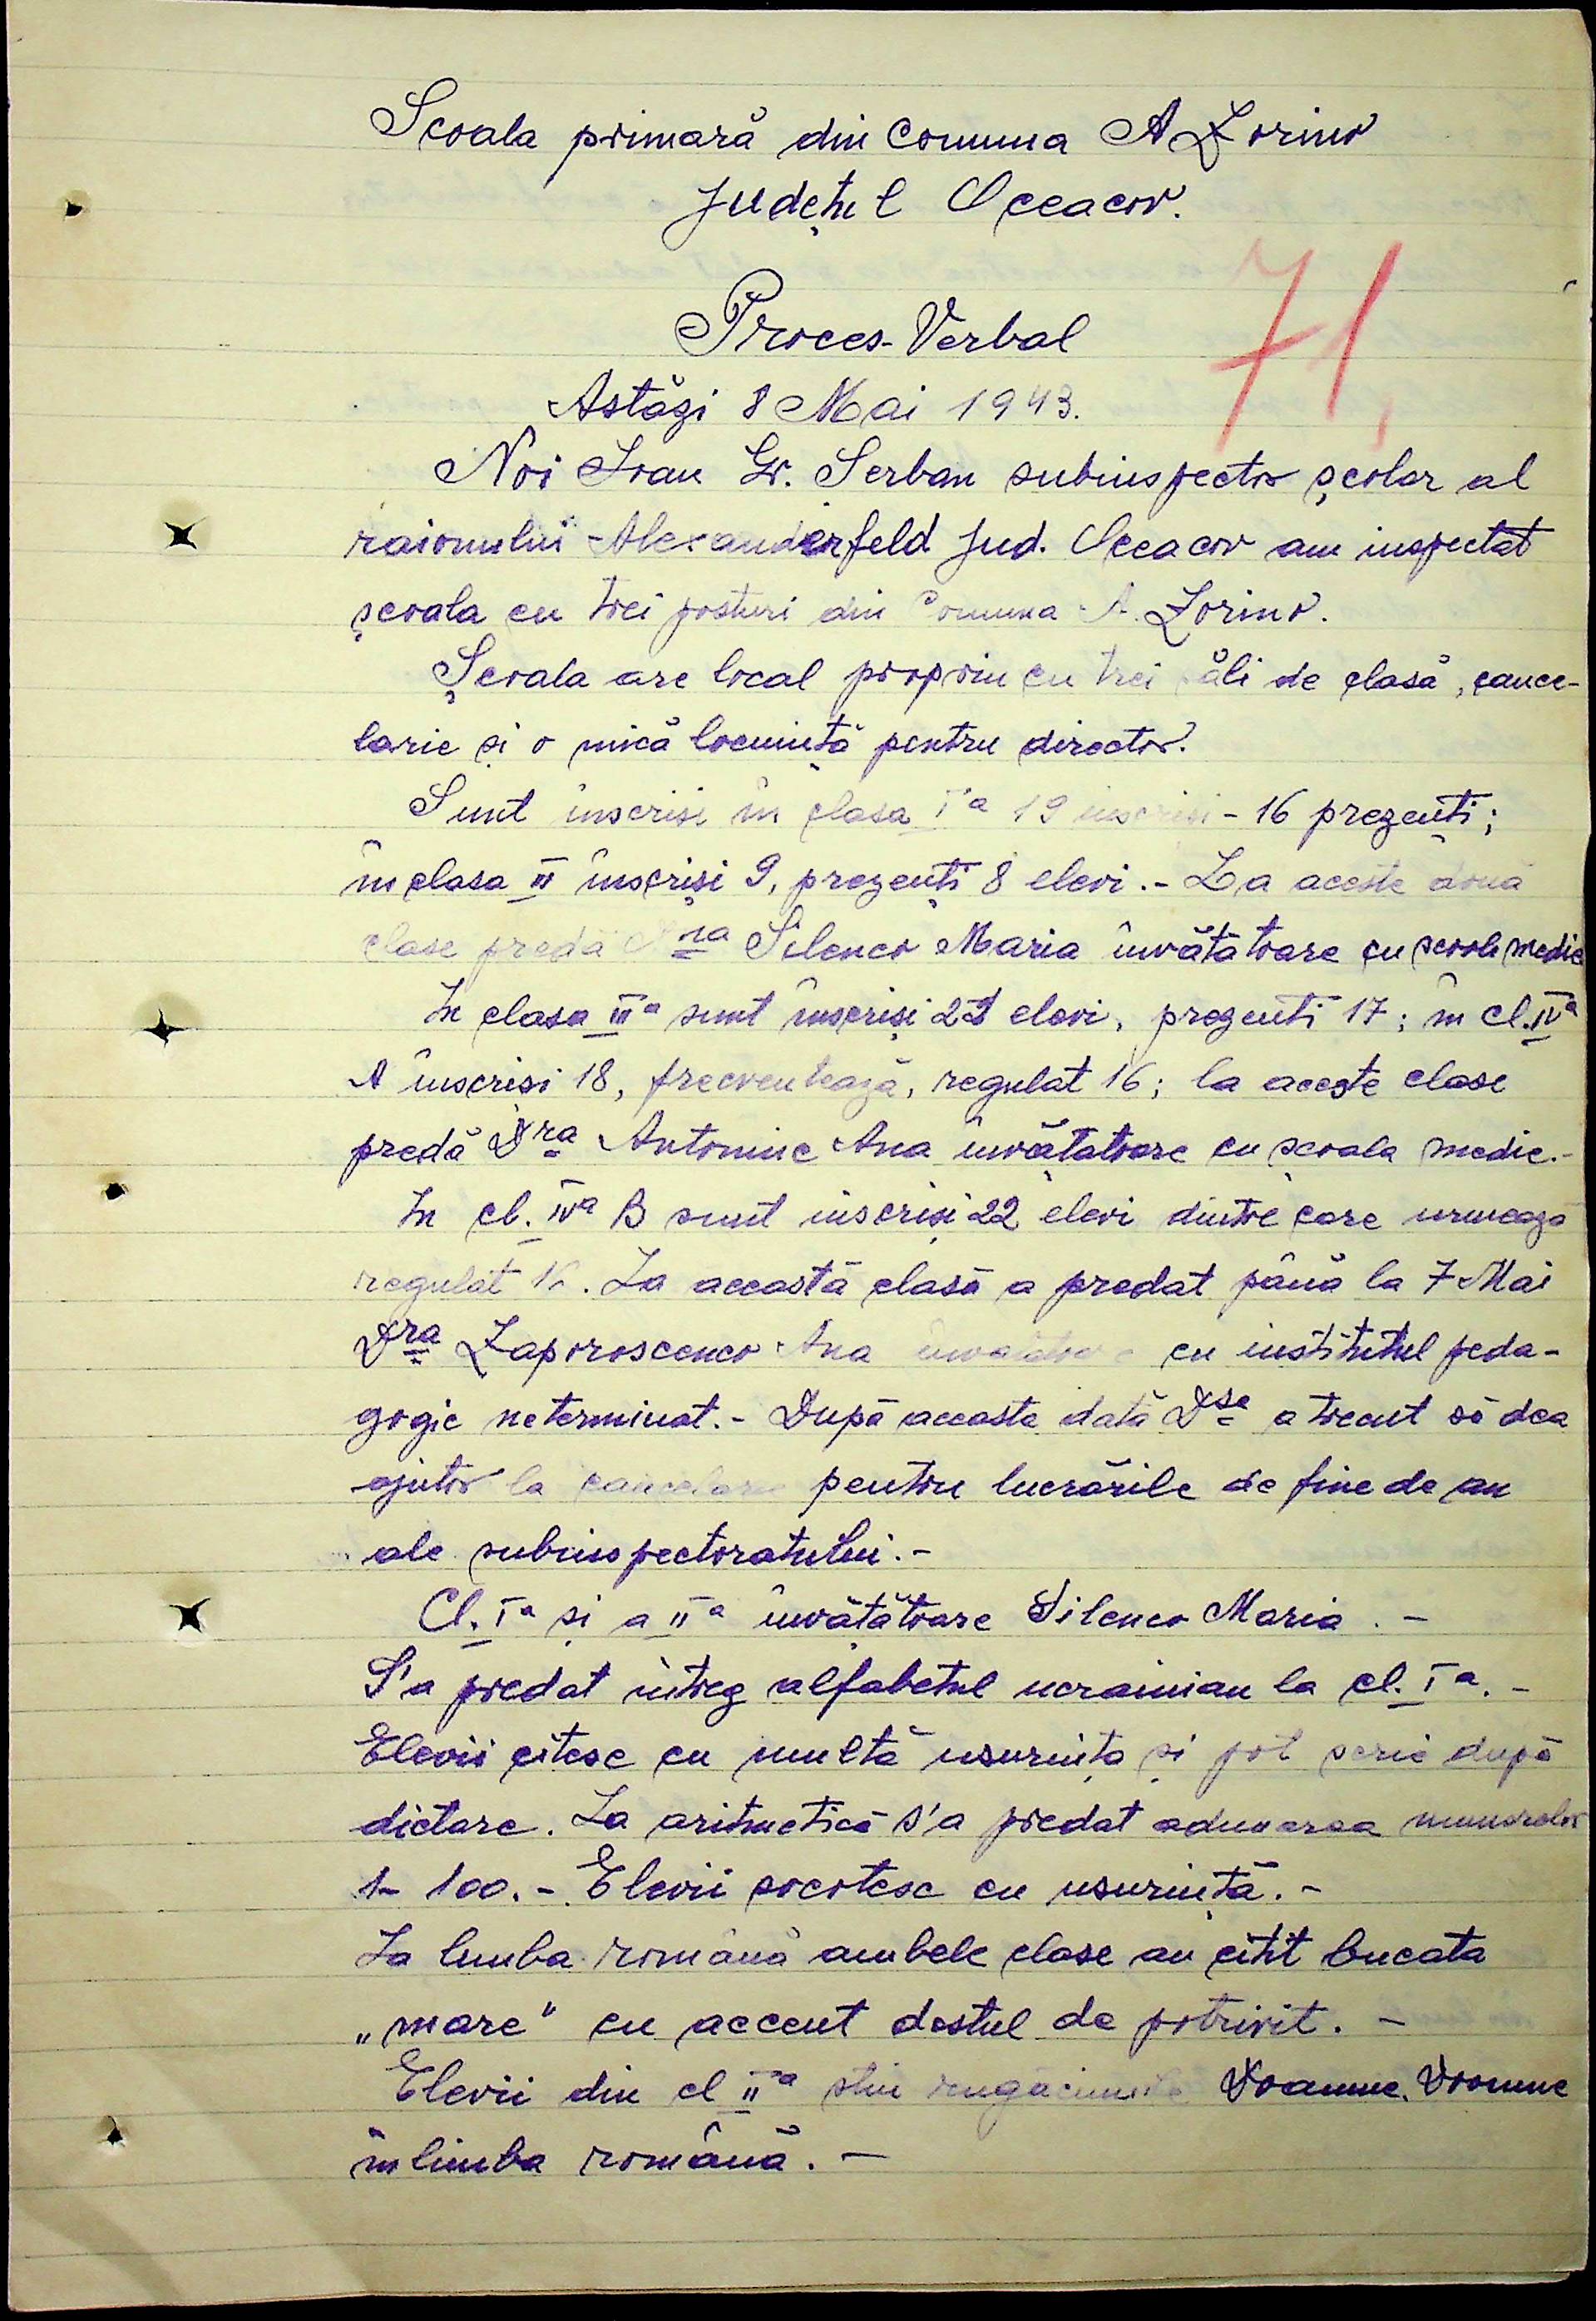 Scoala primară din Comuna A Zorino
Județul Oceacov.
71,
Proces-Verbal
Astăzi 8 Mai 1943.
Noi Ioan Gr. Serban subinspector școlar al
raionului Alexanderfeld Jud. Oceacov am inspectat
școala cu trei posturi din Comuna A. Zorino.
Școala are local propriu cu trei săli de clasă, cance-
larie și o mică locuință pentru director.
Sunt inscrisi în clasa Iª 19 inscrisi - 16 prezenți;
în clasa II înscriși 9, prezenți 8 elevi.- La aceste două
clase predă Silenco Maria învătătoare cu scoala medie
In clasa IIIª sunt înscriși elevi, prezenti 17; în cl. IVª
A înscrisi 18, frecventează, regulat 16; la aceste clase
predă Dra Antoniuc Ana învățatoare cu școala medie.-
In cl. IVª B sunt inscriși 22 elevi dintre care urmeaza
regulat . La această clasă a predat până la 7 Mai
Dra Zaporoscenco Ana cu institutul peda-
gogic neterminat.- După aceasta dată Dsa a trecut să dea
ajutor la cancelarie pentru lucrările de fine de an
ale subinspectoratului.-
Cl. Iª și a IIª învățătoare Silenco Maria. -
S'a predat intreg alfabetul ucrainian la cl. Iª. -
Elevii citesc cu multă usurința și pot scrie după
dictare. La aritmetică s'a predat adunarea numerelor
1- 100. - Elevii socotesc cu usurință. -
La limba română ambele clase au citit bucata
„mare" cu accent destul de potrivit. -
Elevii din cl IIª stiu rugăciunile Doamne, Doamne
în limba română. -